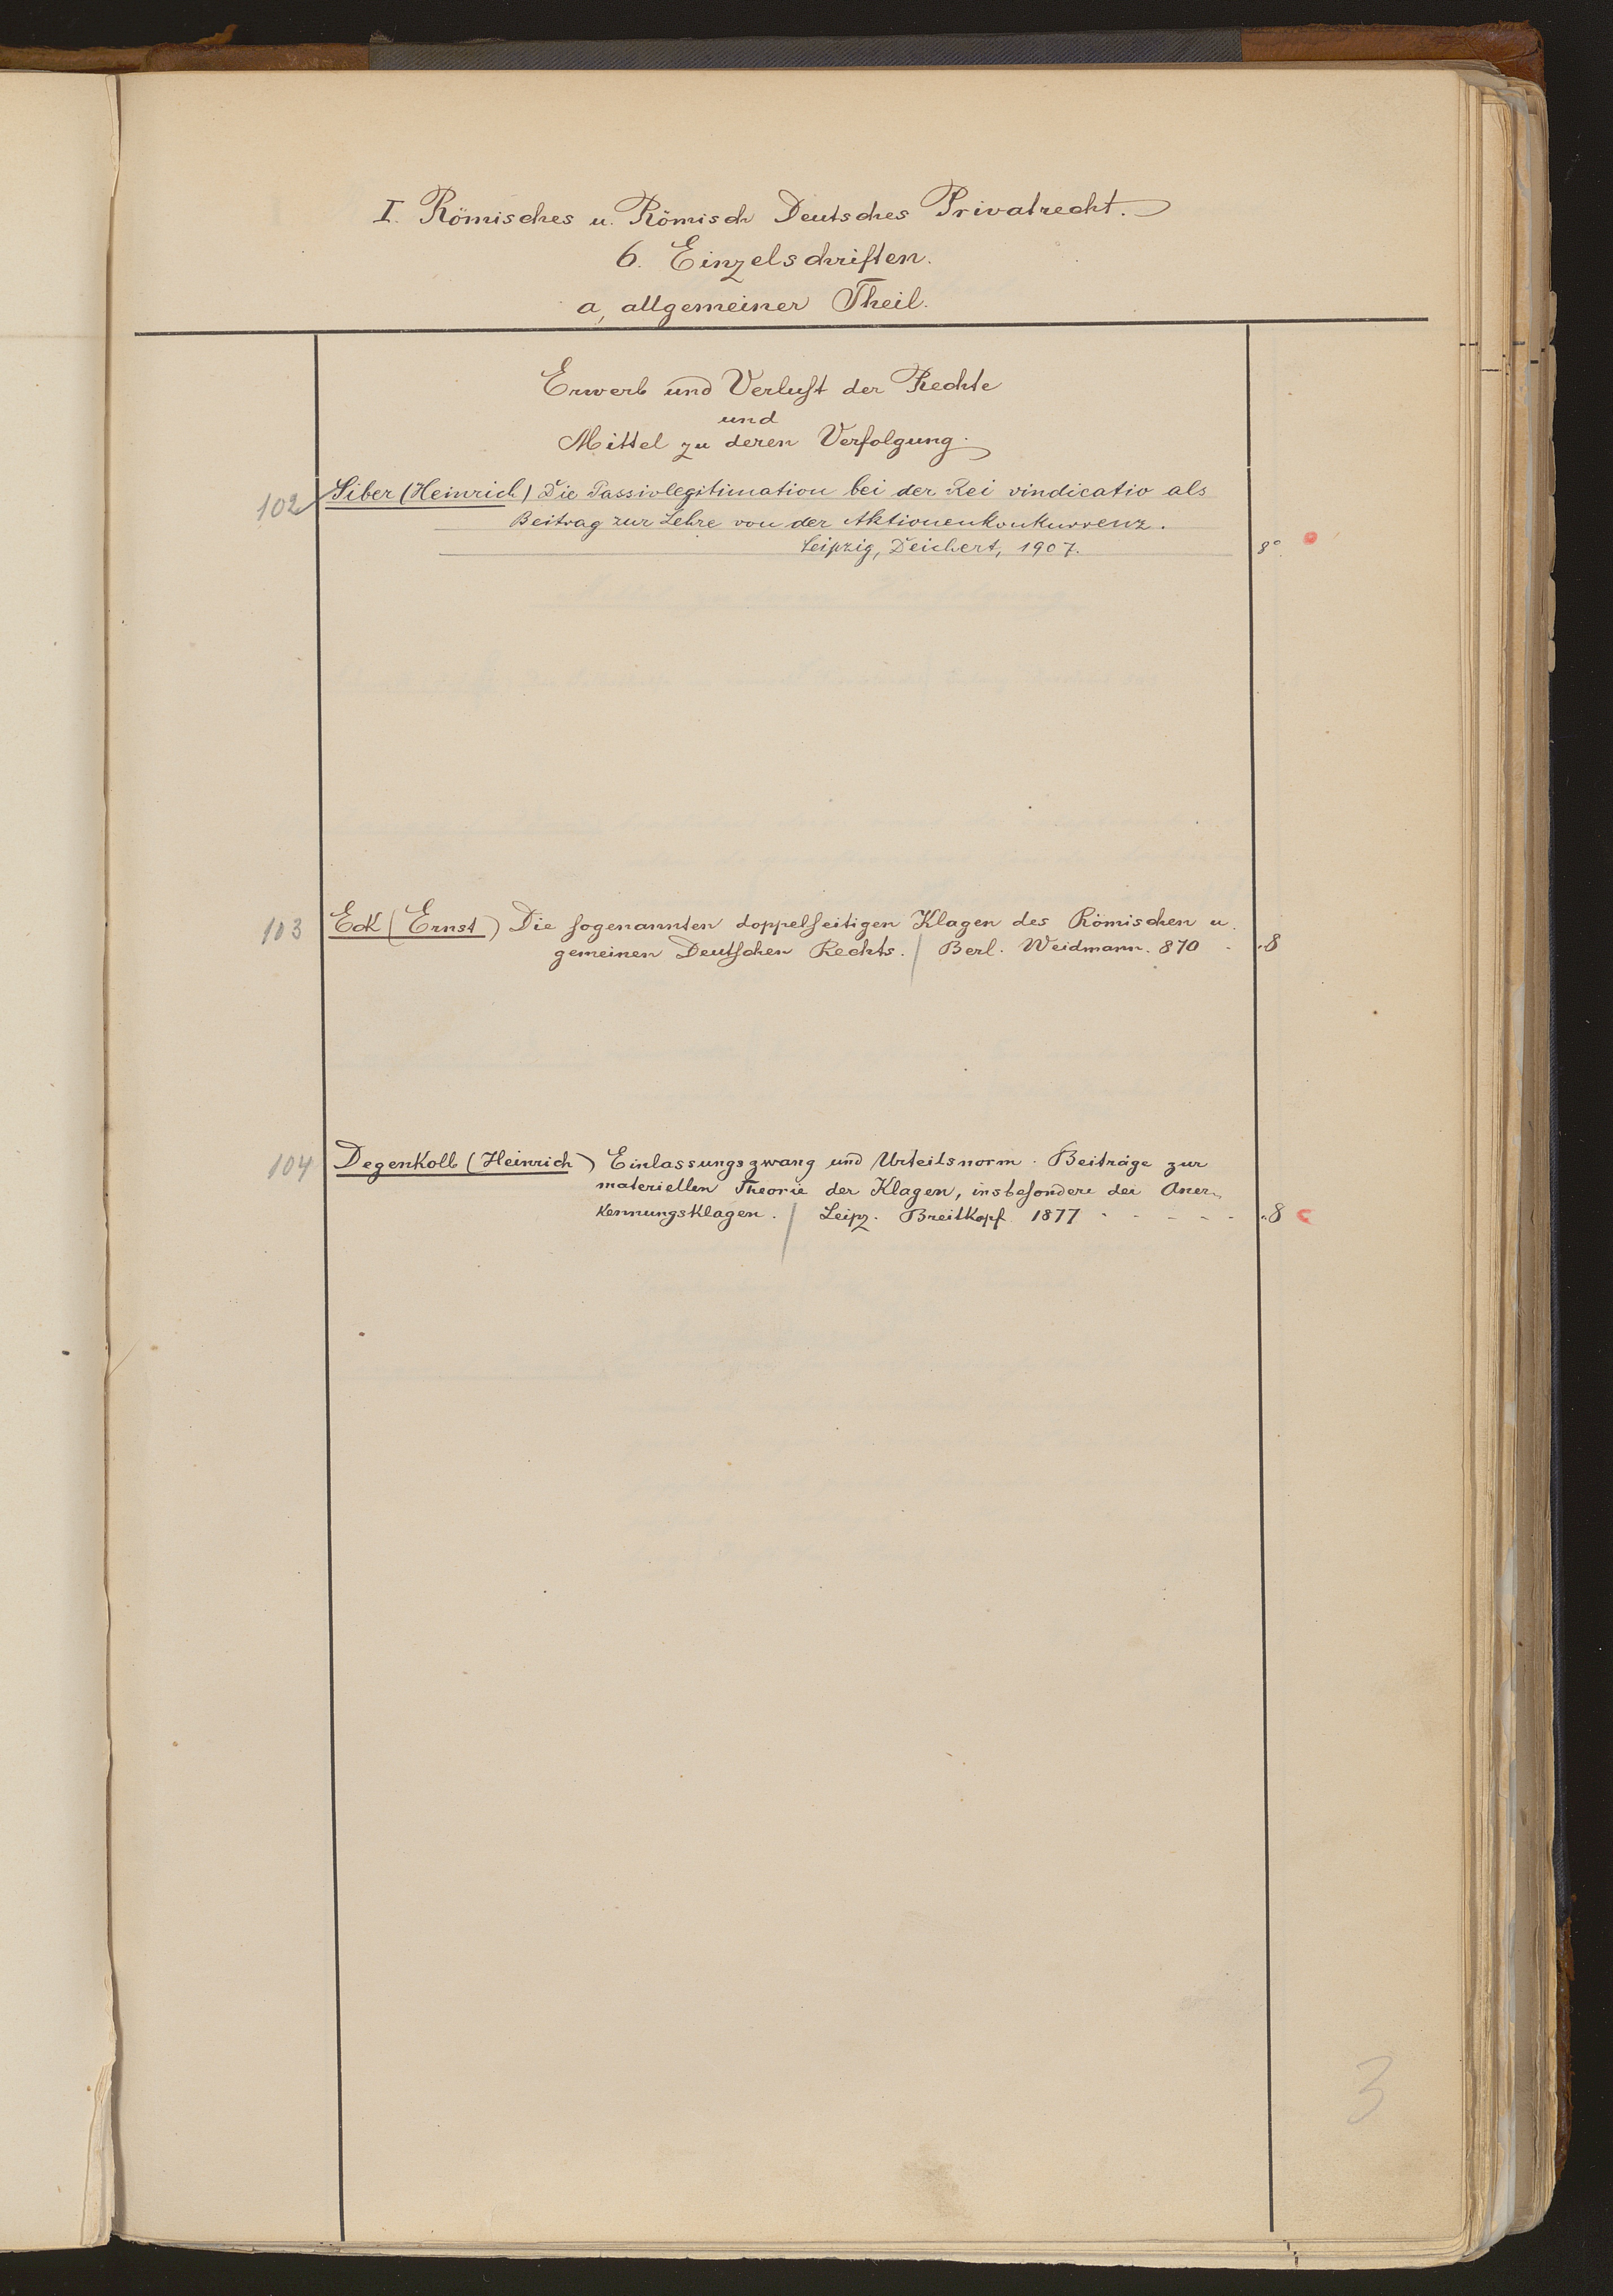 I. Römisches u. Römisch Deutsches Privatrecht.
6. Einzelschriften.
a, allgemeiner Theil.
Erwerb und Verlust der Rechte
und
Mittel zu deren Verfolgung.
102 Siber (Heinrich) Die Passivlegitimation bei der Rei vindicatio als
Beitrag zur Lehre von der Aktionenkonkurrenz.
Leipzig, Deichert, 1907. 8°.
103 Eck (Ernst) Die sogenannten doppelseitigen Klagen des Römischen u.
gemeinen Deutschen Rechts. / Berl. Weidmann. 870 - 8
104 Degenkolb (Heinrich) Einlassungszwang und Urteilsnorm. Beiträge zur
materiellen Theorie der Klagen, insbesondere der Aner-
kennungsklagen. / Leipz. Breitkopf 1877 - - - - - 8
3